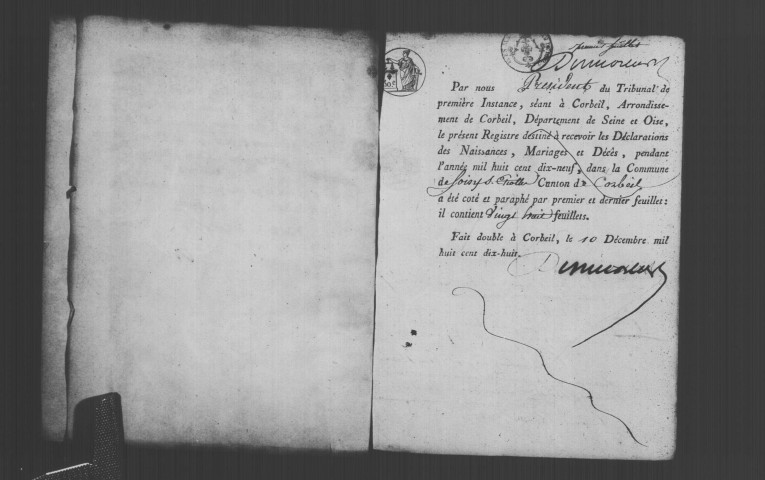 premier feuillet
Par nous Président du Tribunal de
première Instance, séant à Corbeil, Arrondisse-
ment de Corbeil, Département de Seine et Oise,
le présent Registre destiné à recevoir les Déclarations
des Naissances, Mariages et Décès, pendant
l'année mil huit cent dix-neuf, dans la Commune
de Soisy S. Etiolle Canton de Corbeil
a été coté et paraphé par premier et dernier feuillet:
il contient Vingt huit feuillets.
Fait double à Corbeil, le 10 Décembre mil
huit cent dix-huit.